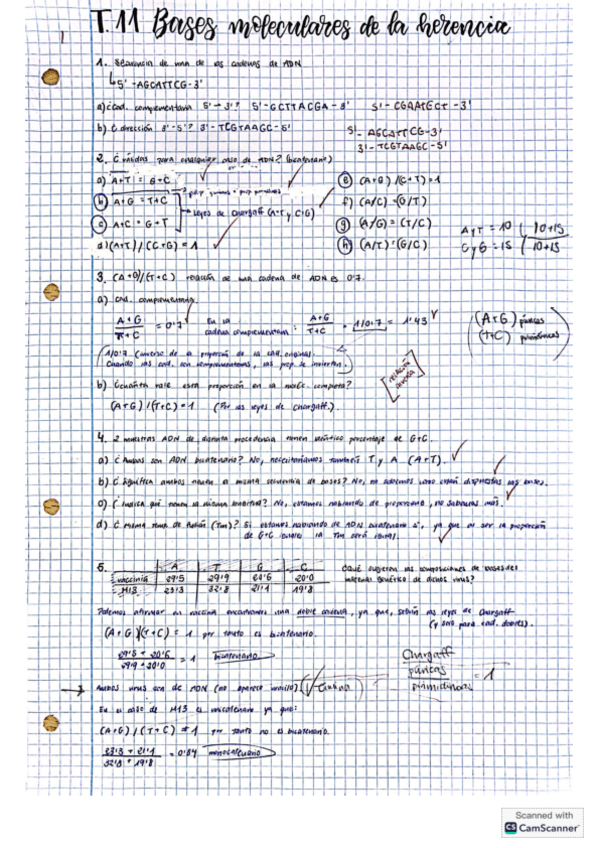 T.11 Bases moleculares de la herencia
1. Secuencia de una de las cadenas de ADN
5' -AGCATTCG-3'
a) ¿Cad. complementaria 5'→3'? 5'-GCTTACGA-3' 5'-CGAATGCT-3'
b) ¿dirección 3'-5'? 3'-TCGTAAGC-5'
5'- AGCATTCG-3'
3'-TCGTAAGC-5'
2. ¿Válidas para cualquier caso de ADN? (bicatenario)
a) A+T = G+C
b) A+G = T+C
c) A+C = G+T
Leyes de Chargaff (A=T y C=G)
d) (A+T)/(C+G) = 1
e) (A+G)/(C+T)=1
f) (A/C)=(G/T)
g) (A/G) = (T/C)
h) (A/T)=(G/C)
A y T = 10 10+15
C y G = 15 10+15
3. (A+G)/(T+C) relación de una cadena de ADN es 0'7.
a) cad. complementaria.
A+G / T+C = 0'7 En la cadena complementaria: A+G / T+C = 1/0'7 = 1'43
(A+G) púricas
(T+C) pirimidínicas
1/0'7 (inverso de la proporción de la cad. original.
Cuando las cad. son complementarias, las prop. se invierten.)
relación inversa
b) ¿Cuánto vale esta proporción en la molec. completa?
(A+G)/(T+C)=1 (Por las leyes de Chargaff.)
4. 2 muestras ADN de distinta procedencia tienen idéntico porcentaje de G+C.
a) ¿Ambos son ADN bicatenario? No, necesitaríamos también T y A (A+T).
b) ¿Significa ambos tienen la misma secuencia de bases? No, no sabemos como están dispuestas las bases.
c) ¿Indica que tienen la misma longitud? No, estamos hablando de proporción, no sabemos más.
d) ¿Misma temp. de fusión (Tm)? Si estamos hablando de ADN bicatenario sí, ya que al ser la proporción
de G+C iguales la Tm será igual.
5.
A T G C
vaccinia 29'5 29'9 20'6 20'0
M13 23'3 32'8 21'1 19'8
¿Qué sugieren las composiciones de bases del
material genético de dichos virus?
Podemos afirmar en vaccinia encontramos una doble cadena, ya que, según las leyes de Chargaff
(y solo para cad. dobles).
(A+G)/(T+C) = 1 por tanto es bicatenario.
29'5 + 20'6 / 29'9 + 20'0 = 1 bicatenario
Chargaff
púricas / pirimidinas = 1
→ Ambos virus son de ADN (no aparece uracilo)
En el caso de M13 es unicatenario ya que:
(A+G)/(T+C) ≠ 1 por tanto no es bicatenario.
23'3 + 21'1 / 32'8 + 19'8 = 0'84 monocatenario
Scanned with
CS CamScanner